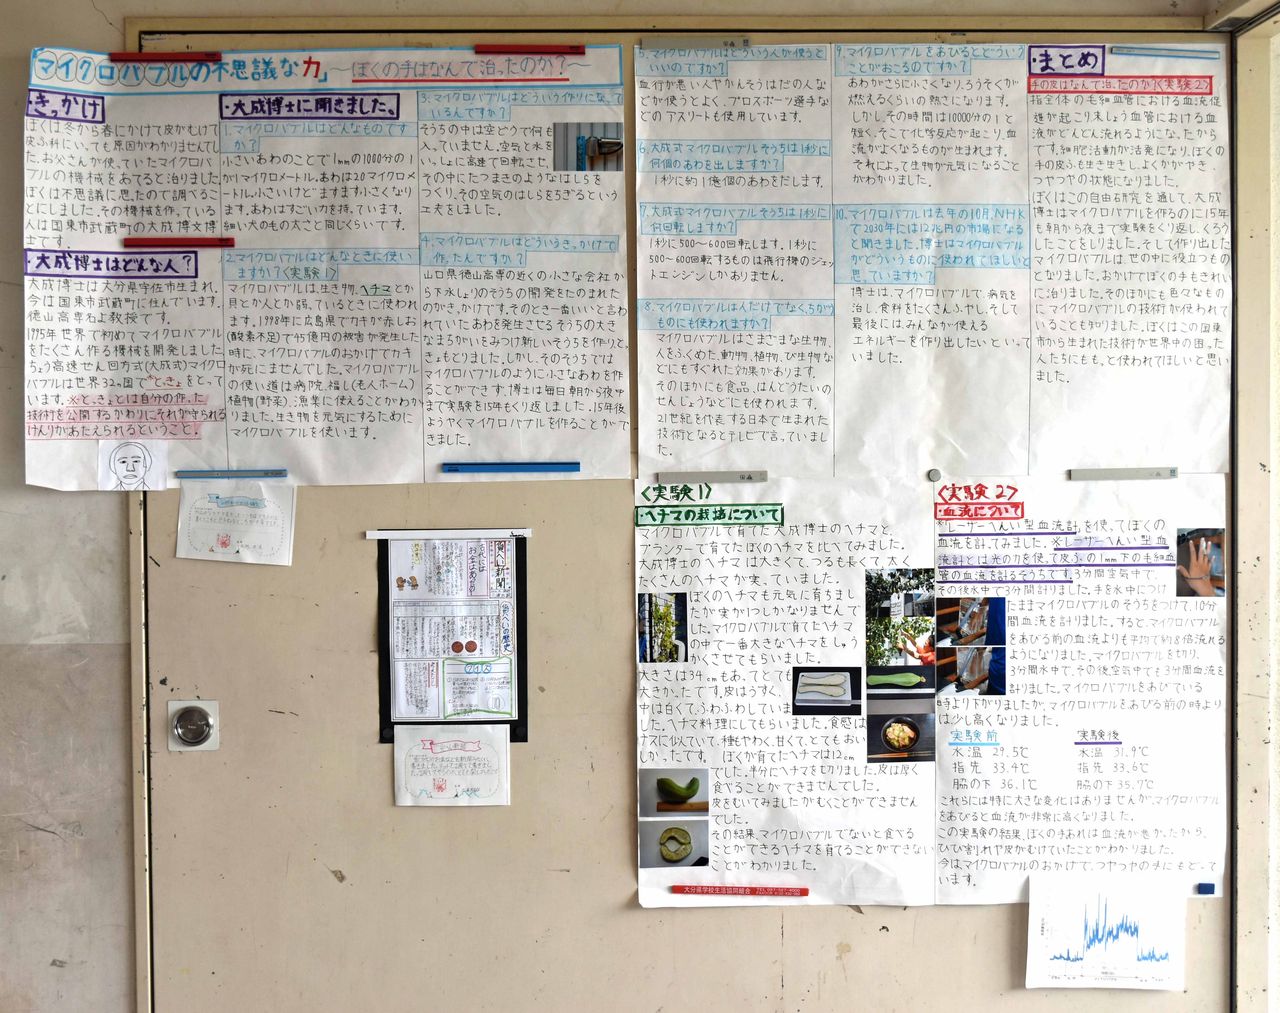 「マイクロバブルの不思議な力」～ぼくの手はなんで治ったのか？～
・きっかけ
ぼくは冬から春にかけて皮がむけて
皮ふ科にいっても原因がわかりませんでし
た。お父さんが使っていたマイクロバ
ブルの機械をあてると治りました。
ぼくは不思議に思ったので調べるこ
とにしました。その機械を作っている
人は国東市武蔵町の大成博文博
士です。
・大成博士はどんな人？
大成博士は大分県宇佐市生まれ、
今は国東市武蔵町に住んでいます。
徳山高専名よ教授です。
1995年世界で初めてマイクロバブル
をたくさん作る機械を開発しました。
ちょう高速せん回方式(大成式)マイクロ
バブルは世界32カ国でとっきょをとって
います。※とっきょとは自分の作った
技術を公開するかわりにそれが守られる
けんりがあたえられるということ。
・大成博士に聞きました。
1.マイクロバブルはどんなものです
か？
小さいあわのことで1mmの1000分の1
が1マイクロメートル。あわは20マイクロメ
ートル。小さいけどますます小さくなり
ます。あわはすごい力を持っています。
細い犬のもの太さと同じくらいです。
2.マイクロバブルはどんなときに使い
ますか？〈実験1〉
マイクロバブルは、生き物、ヘチマとか
貝とか人とか弱っているときに使われ
ます。1998年に広島県でカキが赤しお
(酸素不足)で45億円の被害が発生した
時に、マイクロバブルのおかげでカキ
が死にませんでした。マイクロバブル
の使い道は病院、福し(老人ホーム)
植物(野菜)、漁業に使えることがわか
りました。生き物を元気にするために
マイクロバブルを使います。
3.マイクロバブルはどういう作りになって
いるんですか？
そうちの中は空どうで何も
入っていません。空気と水を
いっしょに高速で回転させ、
その中にたつまきのようなはしらを
つくり、その空気のはしらをちぎるという
工夫をしました。
4.マイクロバブルはどういうきっかけで
作ったんですか？
山口県徳山高専の近くの小さな会社か
ら下水しょりのそうちの開発をたのまれた
のがきっかけです。そのとき一番いいと言わ
れていたあわを発生させるそうちの大き
なまちがいをみつけ新しいそうちを作りとっ
きょもとりました。しかし、そのそうちでは
マイクロバブルのように小さなあわを作る
ことができず、博士は毎日朝から夜中
まで実験を15年もくり返しました。15年後
ようやくマイクロバブルを作ることがで
きました。
5.マイクロバブルはどういう人が使うと
いいのですか？
血行が悪い人やかんそうはだの人な
どが使うとよく、プロスポーツ選手な
どのアスリートも使用しています。
6.大成式マイクロバブルそうちは1秒に
何個のあわを出しますか？
1秒に約1億個のあわをだします。
7.大成式マイクロバブルそうちは1秒に
何回転しますか？
1秒に500～600回転します。1秒に
500～600回転するものは飛行機のジェッ
トエンジンしかありません。
8.マイクロバブルは人だけでなくちがう
ものにも使われますか？
マイクロバブルはさまざまな生き物、
人をふくめた、動物、植物、び生物な
どにもすぐれた効果があります。
そのほかにも食品、はんどうたいの
せんじょうなどにも使われます。
21世紀を代表する日本で生まれた
技術となるとテレビで言っていまし
た。
9.マイクロバブルをあびるとどういう
ことがおこるのですか？
あわがさらに小さくなり、ろうそくが
燃えるくらいの熱さになります。
しかし、その時間は10000分の1と
短く、そこで化学反応が起こり、血
流がよくなるものが生まれます。
それによって生物が元気になること
がわかりました。
10.マイクロバブルは去年の10月、NHK
で2030年には12兆円の市場になる
と聞きました。博士はマイクロバブル
がどういうものに使われてほしいと
思っていますか？
博士は、マイクロバブルで、病気を
治し、食料をたくさんふやし、そして
最後にはみんなが使える
エネルギーを作り出したいといって
いました。
・まとめ
手の皮はなんで治ったのか？〈実験2〉
指全体の毛細血管における血流促
進が起こりましょう血管における血
液がどんどん流れるようになったから
です。細胞活動が活発になり、ぼくの
手の皮ふも生き生きしよくかがやき、
つやつやの状態になりました。
ぼくはこの自由研究を通して、大成
博士はマイクロバブルを作るのに15年
も朝から夜まで実験をくり返しくろう
したことをしりました。そして作り出した
マイクロバブルは、世の中に役立つもの
となりました。おかげでぼくの手もきれい
に治りました。そのほかにも色々なもの
にマイクロバブルの技術が使われて
いることも知りました。ぼくはこの国東
市から生まれた技術が世界中の困った
人たちにももっと使われてほしいと思い
ました。
〈実験1〉
・ヘチマの栽培について
マイクロバブルで育てた大成博士のヘチマと、
プランターで育てたぼくのヘチマを比べてみました。
大成博士のヘチマは大きくて、つるも長くて、太く
たくさんのヘチマが実っていました。
ぼくのヘチマも元気に育ちまし
たが実が1つしかなりませんで
した。マイクロバブルで育てたヘチマ
の中で一番大きなヘチマをしゅう
かくさせてもらいました。
大きさは34cmもあってとても
大きかったです。皮はうすく、
中は白くて、ふわふわしていま
した。ヘチマ料理にしてもらいました。食感は
ナスに似ていて、種もやわく、甘くて、とてもおい
しかったです。 ぼくが育てたヘチマは12cm
でした。半分にヘチマを切りました。皮は厚く
食べることができませんでした。
皮をむいてみましたがむくことができません
でした。
その結果、マイクロバブルでないと食べる
ことができるヘチマを育てることができない
ことがわかりました。
大分県学校生活協同組合
〈実験2〉
・血流について
※レーザーへんい型血流計を使ってぼくの
血流を計ってみました。※レーザーへんい型血
流計とは光の力を使って皮ふの1mm下の毛細血
管の血流を計るそうちです。3分間空気中で、
その後水中で3分間計りました。手を水中につけ
たままマイクロバブルのそうちをつけて、10分
間血流を計りました。すると、マイクロバブル
をあびる前の血流よりも平均で約8倍流れる
ようになりました。マイクロバブルを切り、
3分間水中で、その後空気中でも3分間血流を
計りました。マイクロバブルをあびている
時より下がりましたが、マイクロバブルをあびる前の時より
は少し高くなりました。
実験前 実験後
水温 29.5℃ 水温 31.9℃
指先 33.4℃ 指先 33.6℃
脇の下 36.1℃ 脇の下 35.7℃
これらには特に大きな変化はありませんが、マイクロバブル
をあびると血流が非常に高くなりました。
この実験の結果、ぼくの手あれは血流が悪かったから、
ひび割れや皮がむけていたことがわかりました。
今はマイクロバブルのおかげで、つやつやの手にもどって
います。
クイズ